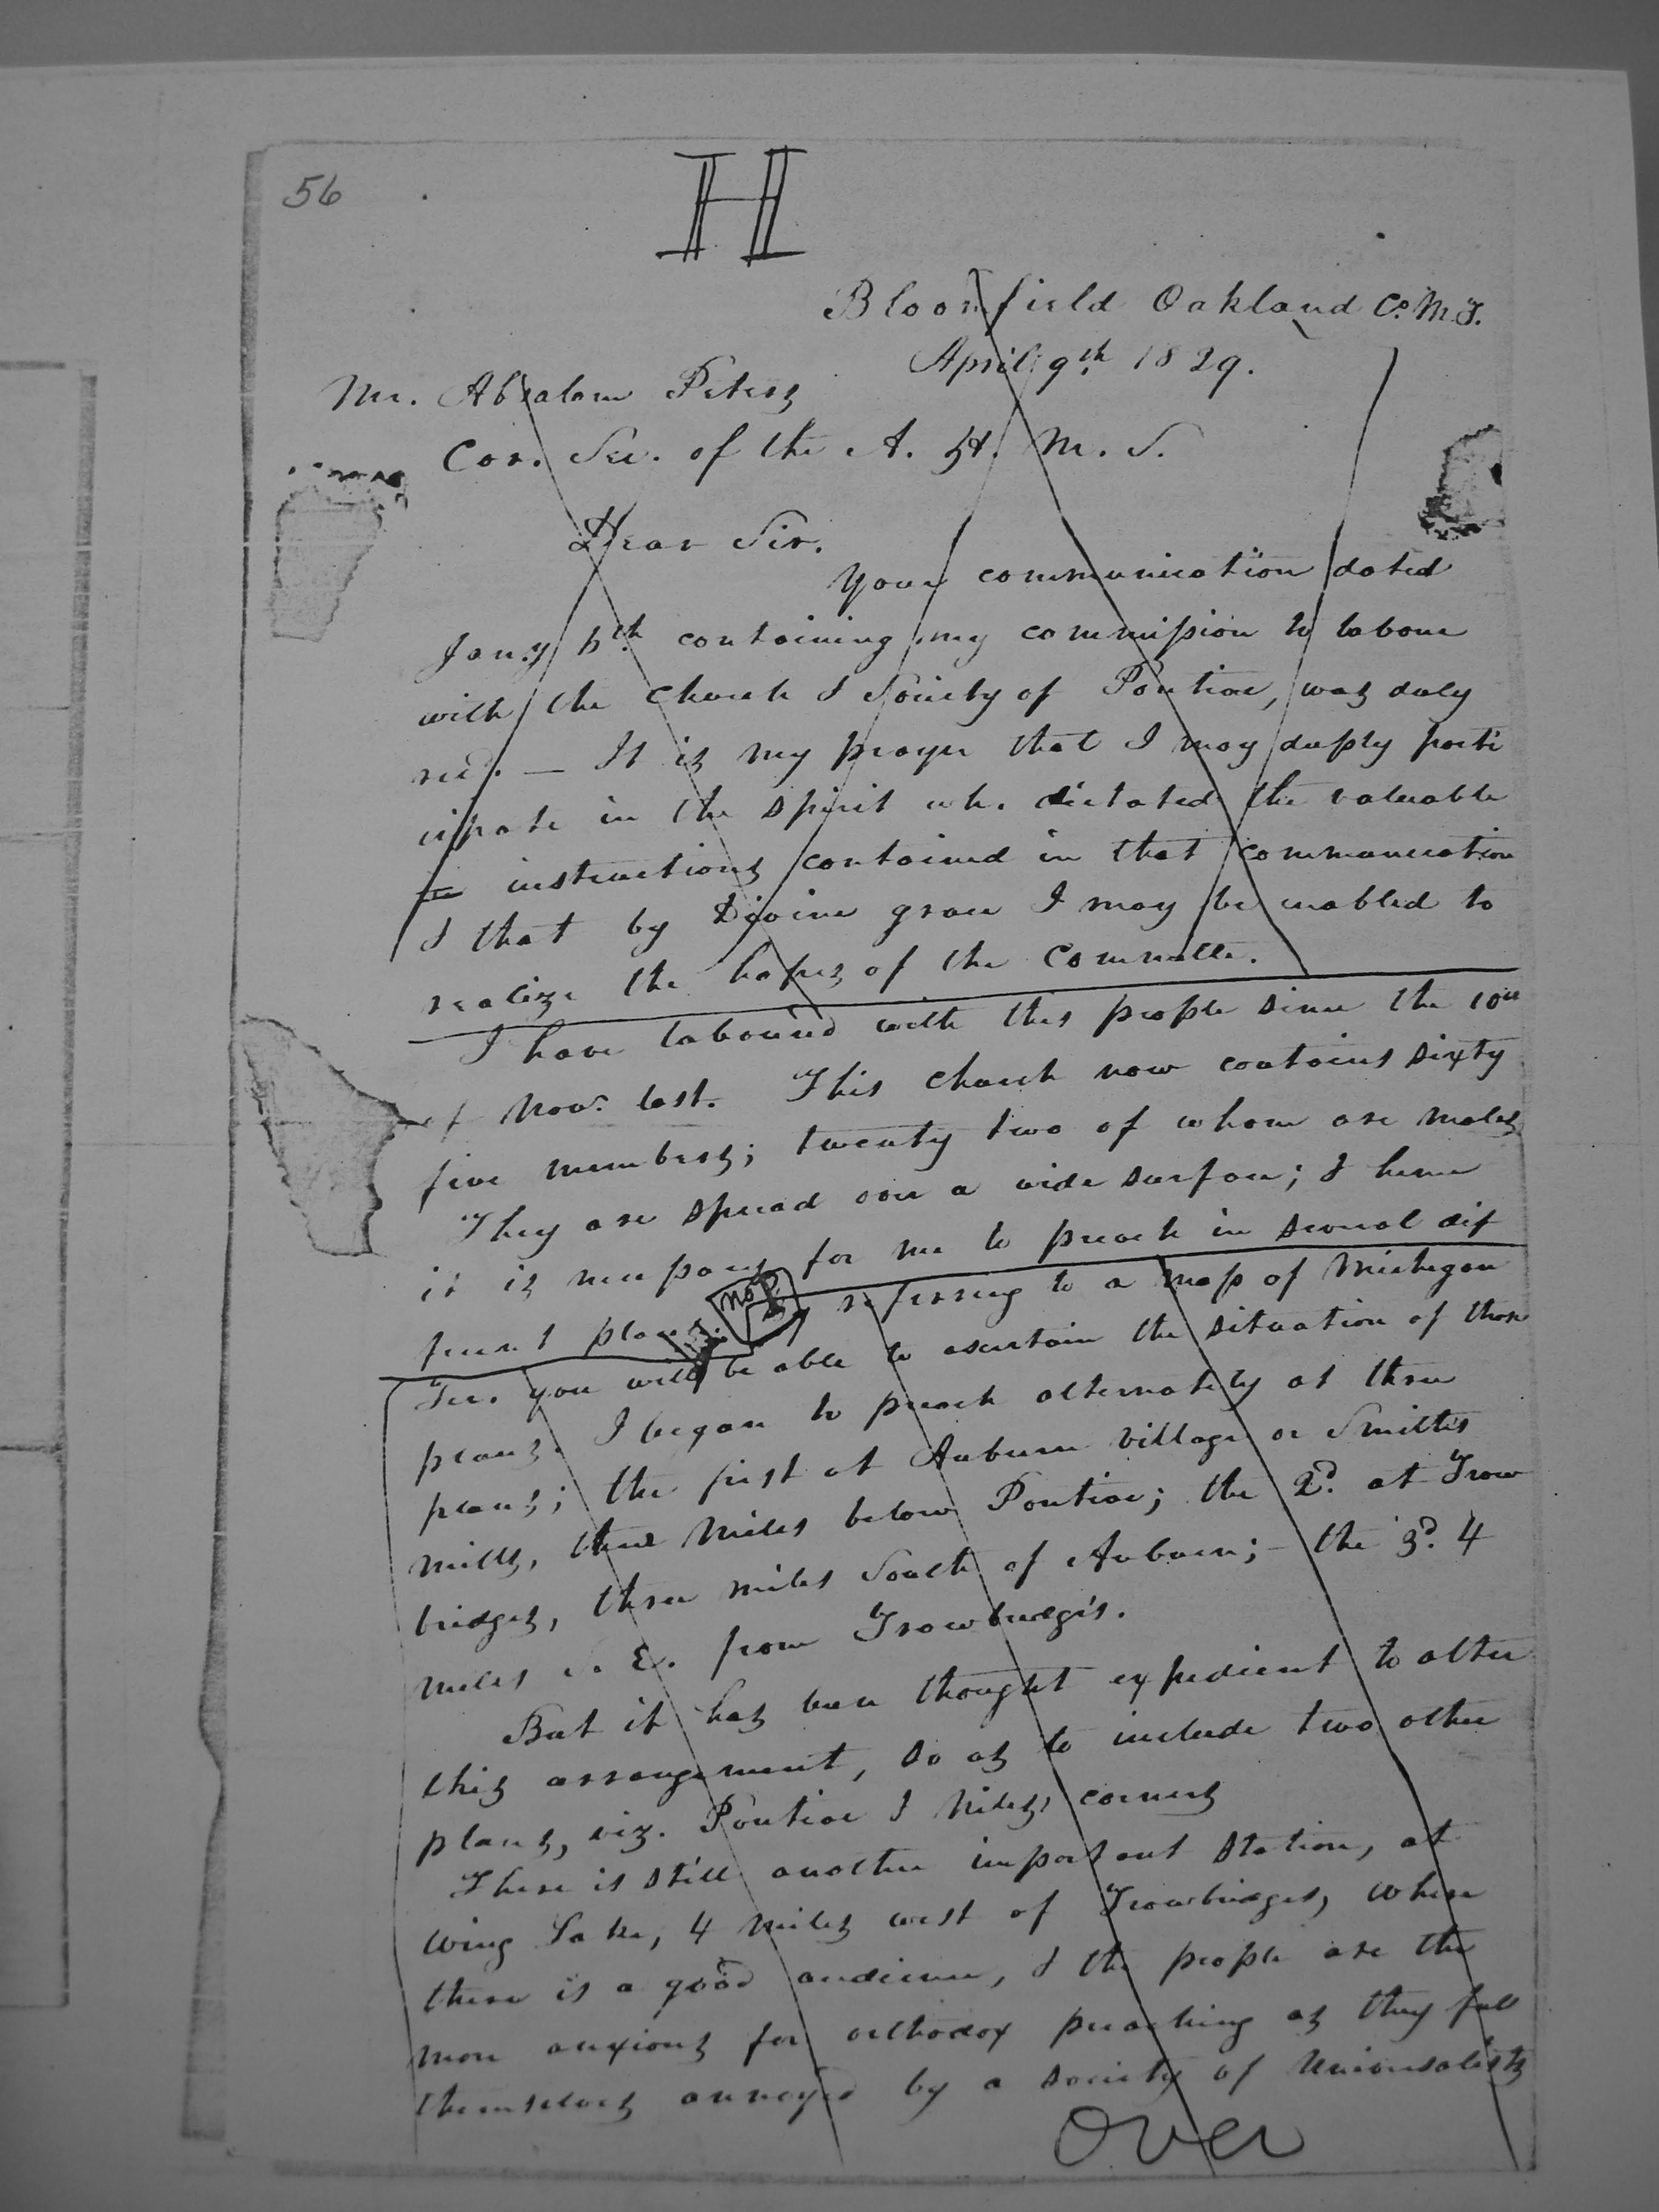 56
H
Bloomfield Oakland Co. M.T.
April 9th 1829.
Mr. Absalom Peters
Cor. Sec. of the A. H. M. S.
Dear Sir.
Your communication dated
Jany 5th containing my commission to labour
with the Church & Society of Pontiac, was duly
recd. — It is my prayer that I may deeply parti
cipate in the spirit wh. dictated the valuable
instructions contained in that communication
& that by Divine grace I may be enabled to
realize the hopes of the Committe.
I have laboured with this people since the 10th
of Novr. last. This church now contains sixty
five members; twenty two of whom are males
They are spread over a wide surface; & hence
it is necessary for me to preach in several dif
ferent places. No P By referring to a map of Michigan
Ter. you will be able to ascertain the situation of those
places. I began to preach alternately at three
places; the first at Auburn village or Smith's
mills, three miles below Pontiac; the 2d. at Trow
bridges, three miles South of Auburn; – the 3d. 4
miles S. E. from Trowbridge's.
But it has been thought expedient to alter
this arrangement, so as to include two other
places, viz. Pontiac & Niles' corners
There is still another important station, at
Wing Lake, 4 miles west of Trowbridges, where
there is a good audience, & the people are the
more anxious for orthodox preaching as they feel
themselves annoyed by a society of Universalists
Over